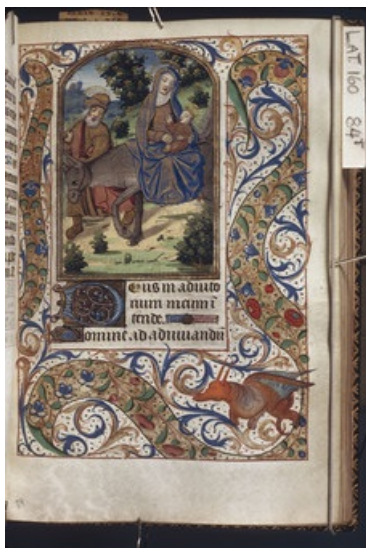 LAT 160 84r
Deus in adiuto
rium meum i
tende.
Domine ad adiuuandū